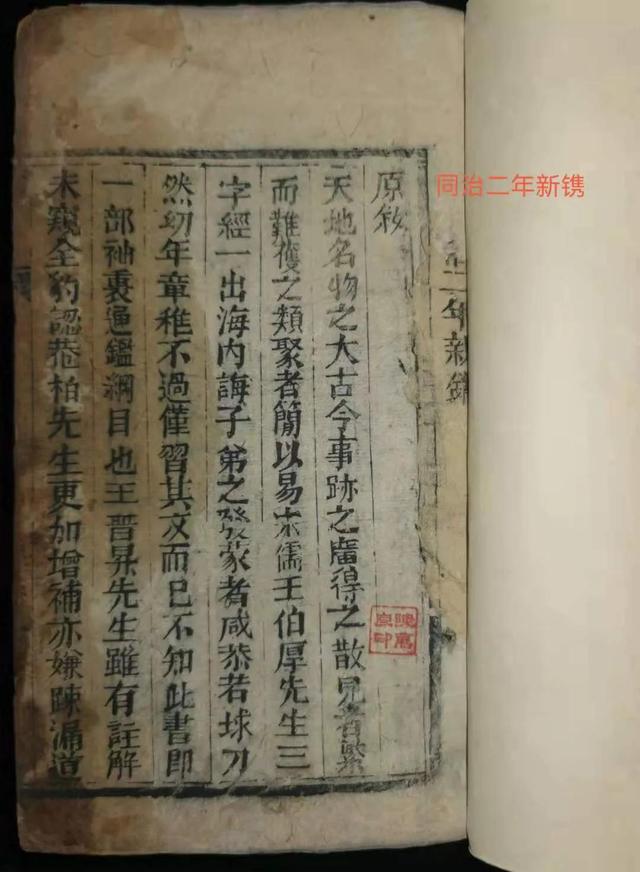 同治二年新镌
二年新鐫
原敘
天地名物之大古今事跡之廣得之散見者繁
而難獲之類聚者簡以易宋儒王伯厚先生三
字經一出海內誨子弟之發蒙者咸恭若球刀
然幼年章稚不過僅習其文而已不知此書即
一部袖裏通鑑綱目也王晉昇先生雖有註解
未窺全豹認菴柏先生更加增補亦嫌踈漏道